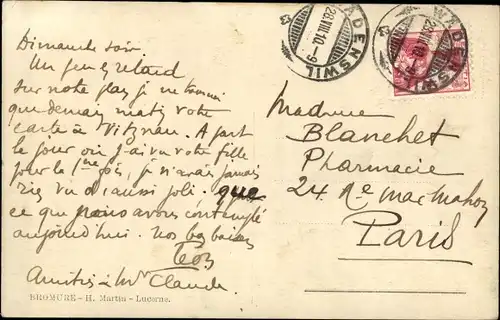 Dimanche soir.
Un peu en retard
sur notre plan, je ne
que demain matin votre
carte à Vitznau. A part
le jour où j'ai vu votre fille
pour la 1ère fois, je n'avais jamais
rien vu d'aussi joli que
ce que nous avons contemplé
aujourd'hui. Nos bons baisers
Amitiés à Mr Claude.
BROMURE - H. Martin - Lucerne.
WÄDENSWIL
28.VII.10.-9
WÄDENSWIL
28.VII.10.-9
Madame
Blanchet
Pharmacie
24 Ae Mac Mahon
Paris